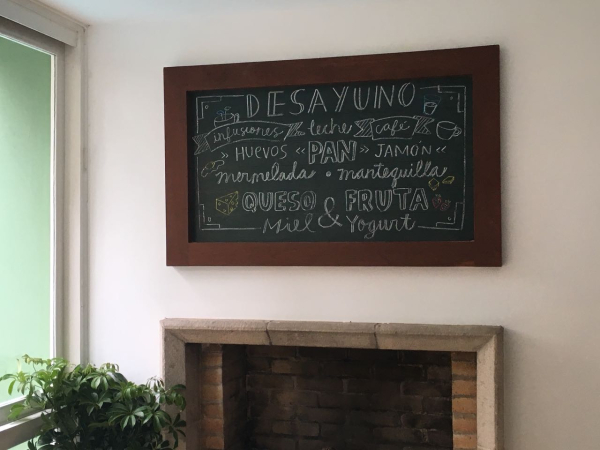 DESAYUNO
infusiones leche café
HUEVOS « PAN » JAMÓN «
mermelada • mantequilla
QUESO & FRUTA
Miel Yogurt